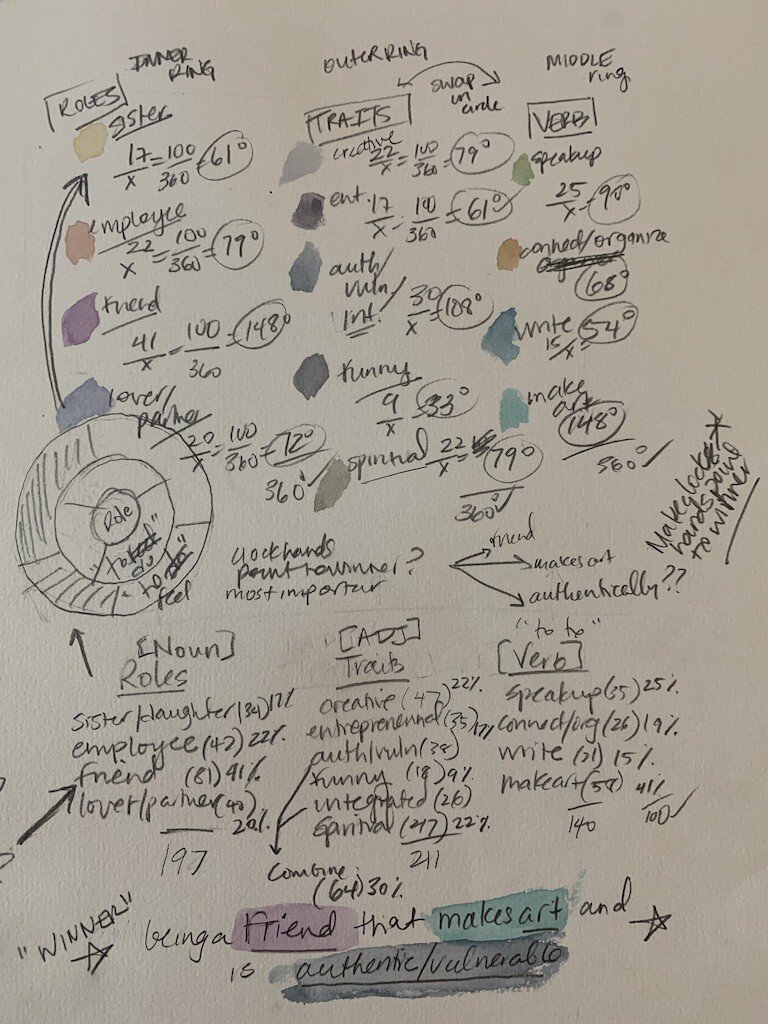 INNER RING
OUTER RING
MIDDLE ring
swap in circle
ROLES
TRAITS
VERB
sister
17/x = 100/360 = 61°
employee
22/x = 100/360 = 79°
friend
41/x = 100/360 = 148°
lover/partner
20/x = 100/360 = 72°
360° ✓
creative
22/x = 100/360 = 79°
ent.
17/x = 100/360 = 61°
auth/vuln/Int.
30/x = 108°
funny
9/x = 33°
spiritual 22/x = 79°
360° ✓
speakup
25/x = 90°
connect/organize
68°
write
15/x = 54°
make art
148°
360° ✓
Role
"to do"
"to feel"
clock hands
point to winner?
most important
friend
makes art
authentically??
Make clock hands point to winner
[Noun]
Roles
sister/daughter (34) 17%
employee (42) 22%
friend (81) 41%
lover/partner (40) 20%
197
[ADJ]
Traits
creative (47) 22%
entrepreneurial (35) 17%
auth/vuln (38)
funny (18) 9%
integrated (26)
spiritual (47) 22%
211
Combine:
(64) 30%
"to to"
[Verb]
speakup (35) 25%
connect/org (26) 19%
write (21) 15%
makeart (58) 41%
140
100 ✓
"WINNER"
being a friend that makes art and
is authentic/vulnerable